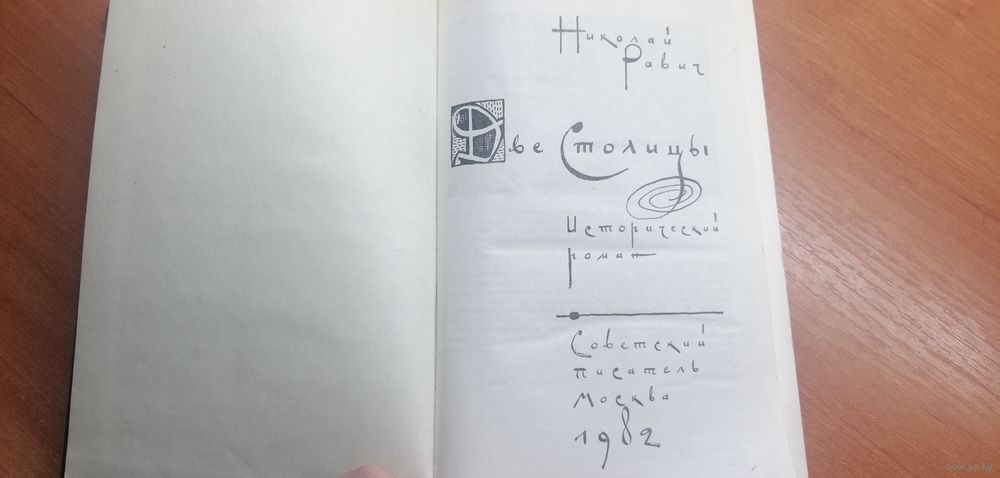 Николай
Равич
Две Столицы
Исторический
роман
Советский
писатель
Москва
1982
www.ay.by